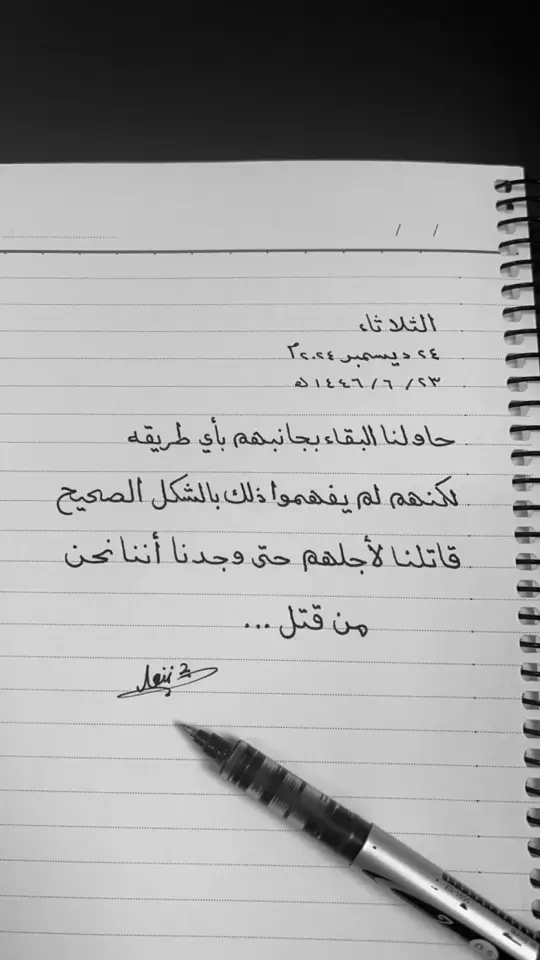 الثلاثاء
٢٤ ديسمبر ٢٠٢٤م
٢٣/ ٦ /١٤٤٦ه
حاولنا البقاء بجانبهم بأي طريقه
لكنهم لم يفهموا ذلك بالشكل الصحيح
قاتلنا لأجلهم حتى وجدنا أننا نحن
من قتل ...